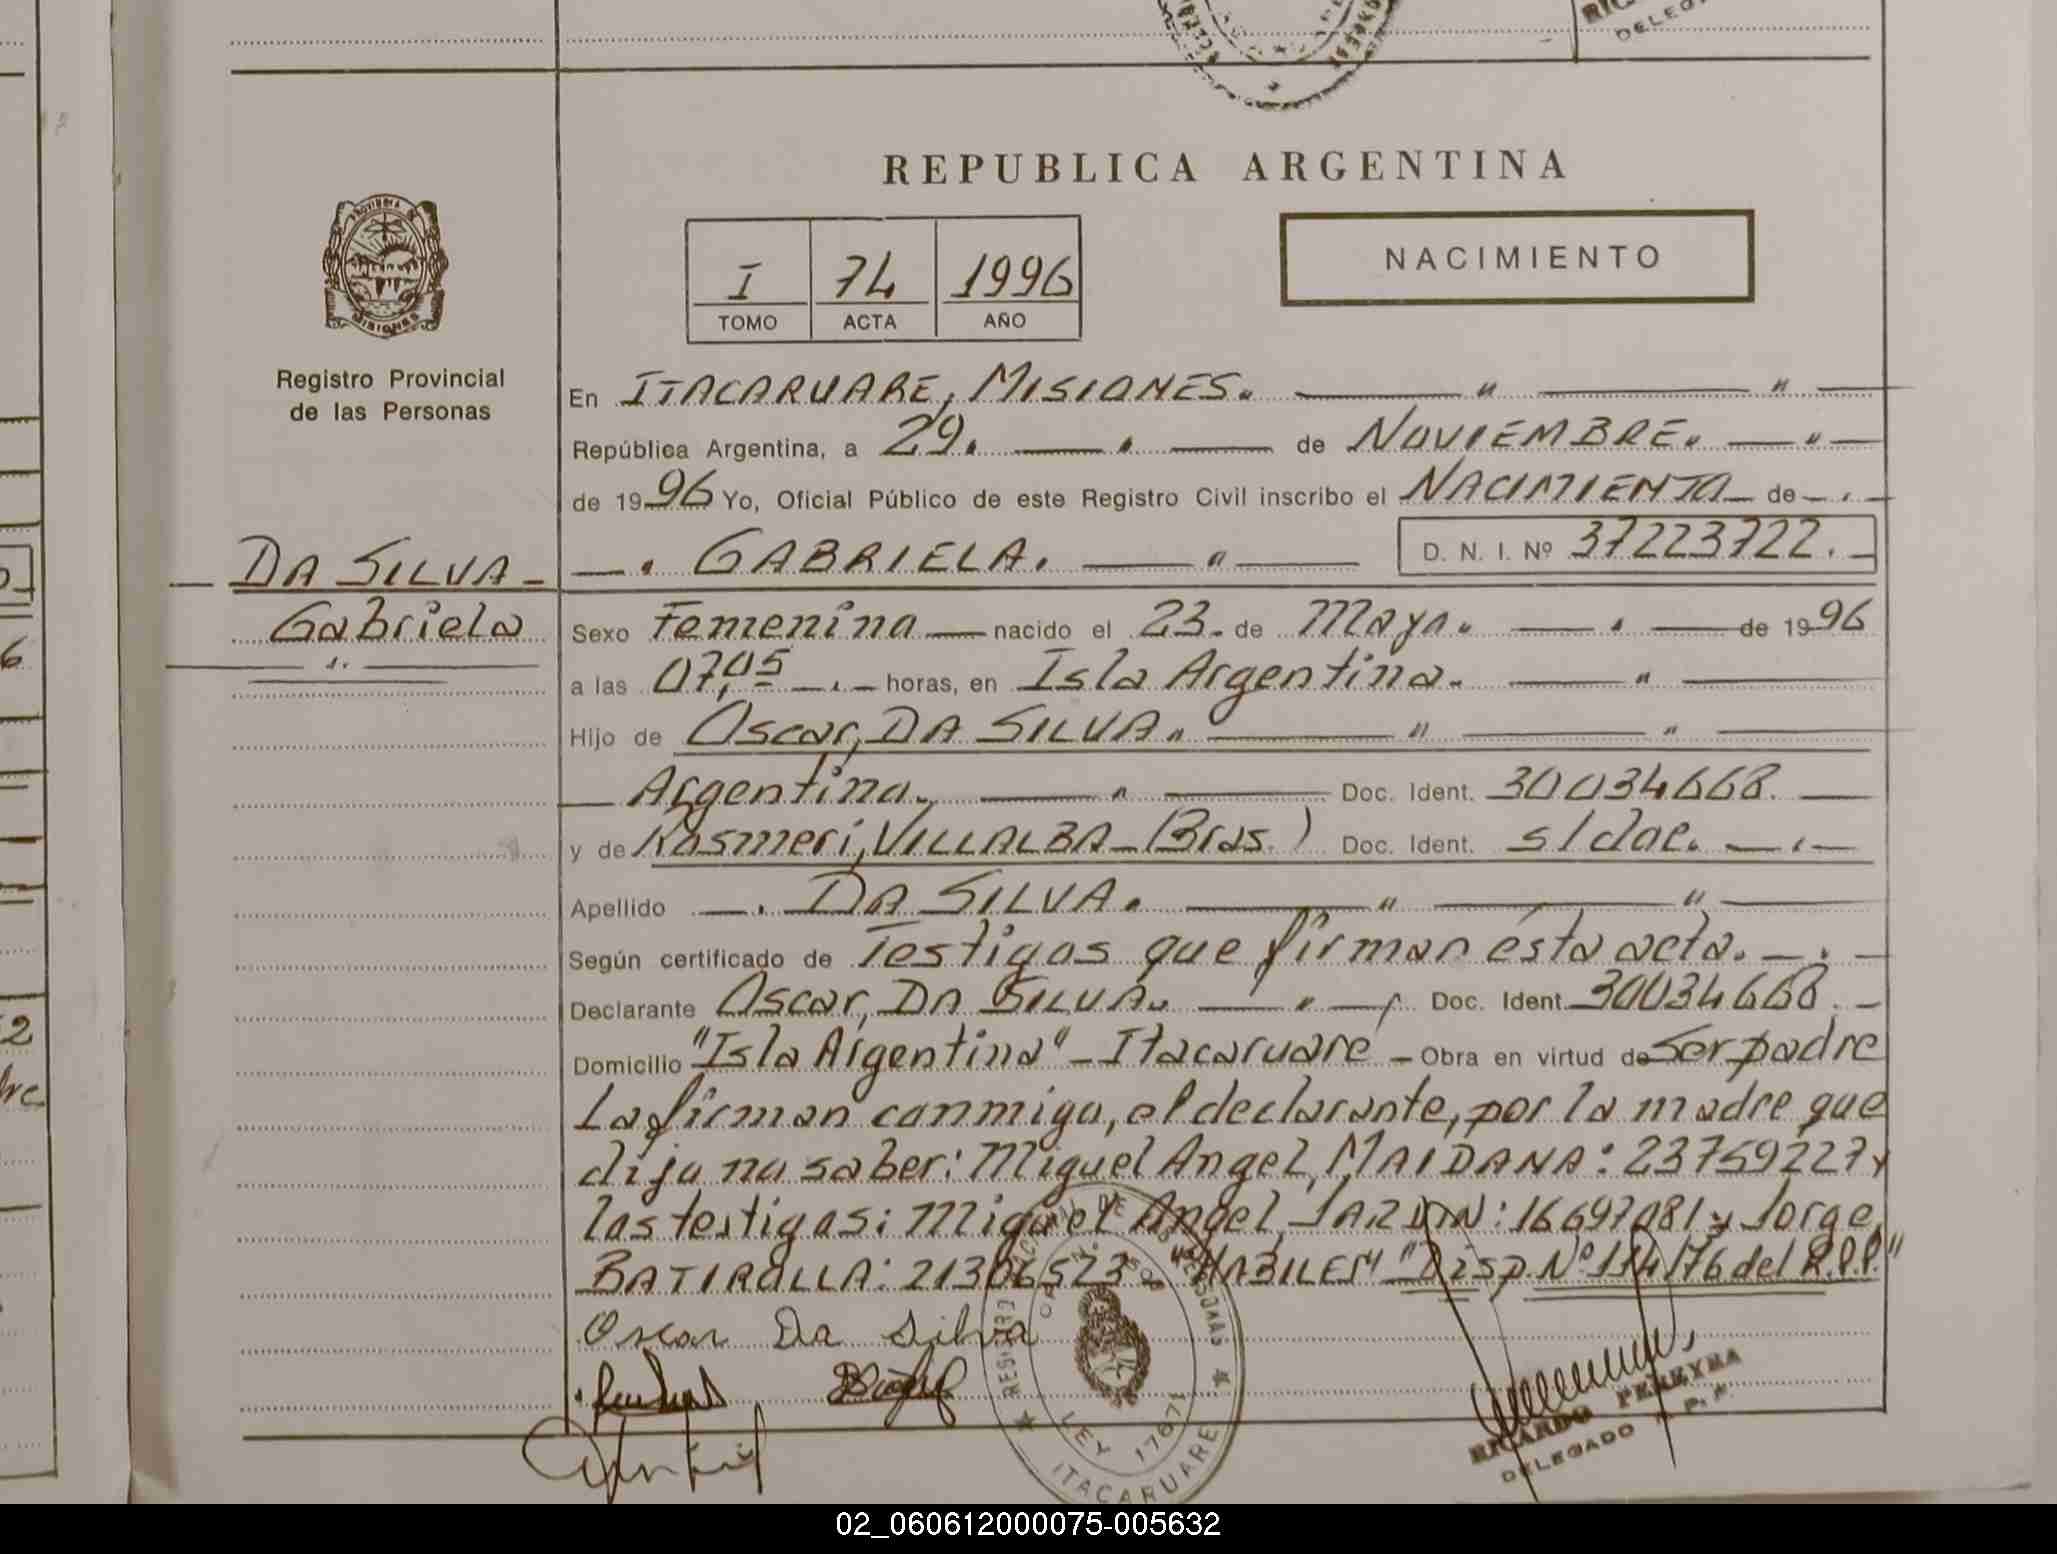 REPUBLICA ARGENTINA
PROVINCIA DE
MISIONES
Registro Provincial
de las Personas
NACIMIENTO
I 74 1996
TOMO ACTA AÑO
En ITACARUARE, MISIONES.
República Argentina, a 29. de NOVIEMBRE.
de 1996 Yo, Oficial Público de este Registro Civil inscribo el NACIMIENTO de
DA SILVA
Gabriela
GABRIELA. D. N. I. Nº 37223722.
Sexo Femenino nacido el 23. de Mayo. de 1996
a las 07,05 horas, en Isla Argentina.
Hijo de Oscar, DA SILVA.
Argentino. Doc. Ident. 30034668.
y de Rosmeri, VILLALBA (Bras.) Doc. Ident. s/doc.
Apellido DA SILVA.
Según certificado de Testigos que firman ésta acta.
Declarante Oscar, DA SILVA. Doc. Ident. 30034668.
Domicilio "Isla Argentina" - Itacaruare - Obra en virtud de Ser padre
La firman conmigo, el declarante, por la madre que
dijo no saber: Miguel Angel, MAIDANA: 23759227 y
los testigos: Miguel Angel, JARDIN: 16697081 y Jorge,
BATIROLLA: 21306523 "HABILES" "Disp. Nº 114/76 del R.P.P."
Oscar Da Silva
REGISTRO NACIONAL DE LAS PERSONAS
LEY 17671
ITACARUARE
RICARDO PEREYRA
DELEGADO R. P. P.
02_060612000075-005632